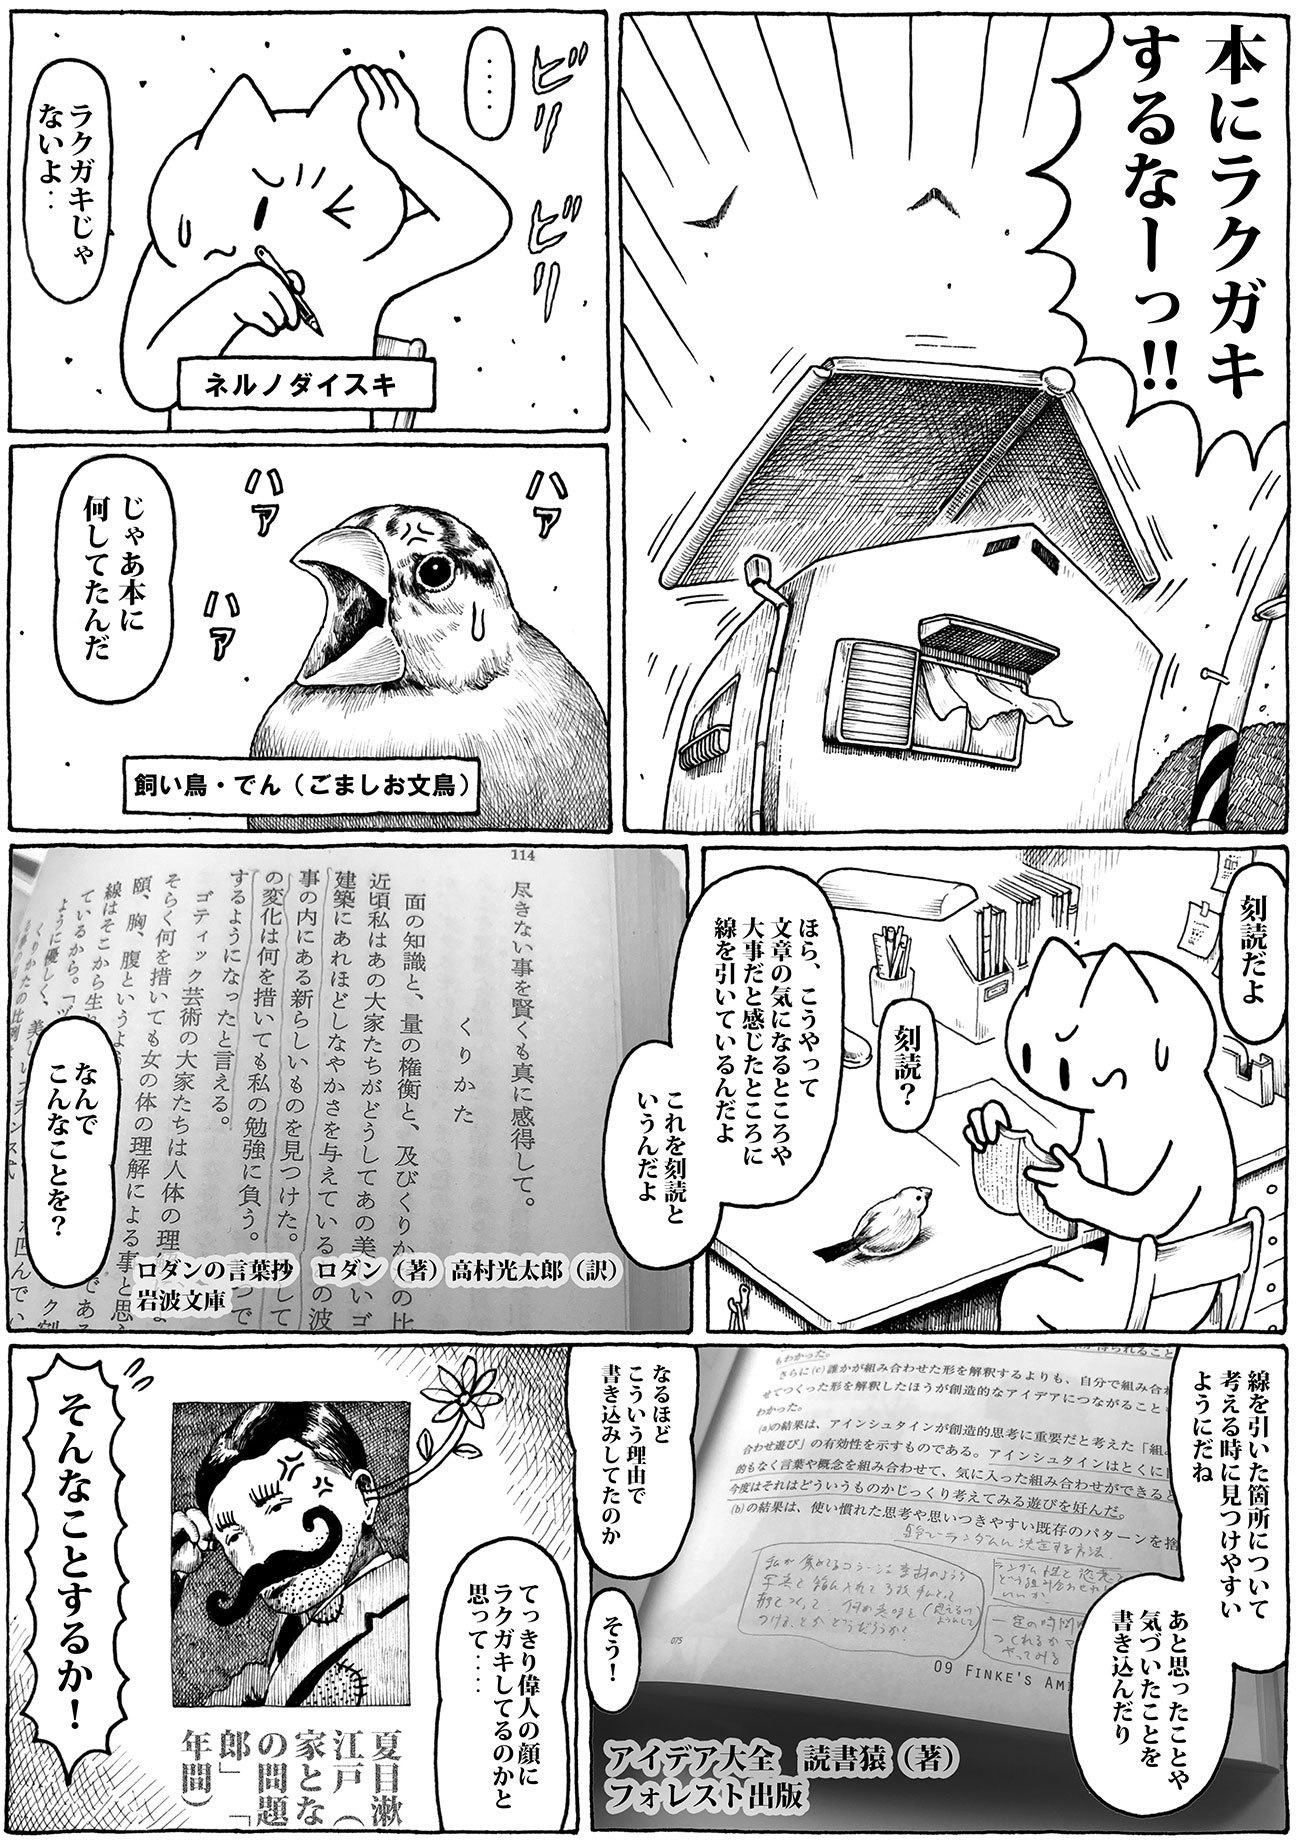 本にラクガキ
するなーっ!!
ビリ
ビリ
‥‥
ラクガキじゃ
ないよ‥
ネルノダイスキ
ハァ
ハァ
ハァ
じゃあ本に
何してたんだ
飼い鳥・でん（ごましお文鳥）
刻読だよ
刻読？
ほら、こうやって
文章の気になるところや
大事だと感じたところに
線を引いているんだよ
これを刻読と
いうんだよ
114
尽きない事を賢くも真に感得して。
くりかた
面の知識と、量の権衡と、及びくりかたの比
近頃私はあの大家たちがどうしてあの美しいゴ
建築にあれほどしなやかさを与えているの
事の内にある新らしいものを見つけた。
の変化は何を措いても私の勉強に負う。
するようになったと言える。
ゴティック芸術の大家たちは人体の理
そらく何を措いても女の体の理解による事と思
頤、胸、腹という
線はそこから生
ているから。「ヴ
ように優しく、美
ロダンの言葉抄　ロダン（著）高村光太郎（訳）
岩波文庫
なんで
こんなことを？
線を引いた箇所について
考える時に見つけやすい
ようにだね
あと思ったことや
気づいたことを
書き込んだり
もわかった。
さらに(c)誰かが組み合わせた形を解釈するよりも、自分で組み合わ
せてつくった形を解釈したほうが創造的なアイデアにつながること
わかった。
(a)の結果は、アインシュタインが創造的思考に重要だと考えた「組
合わせ遊び」の有効性を示すものである。アインシュタインはとくに
的もなく言葉や概念を組み合わせて、気に入った組み合わせができると
今度はそれはどういうものかじっくり考えてみる遊びを好んだ。
(b)の結果は、使い慣れた思考や思いつきやすい既存のパターンを捨
075
09 FINKE'S AM
アイデア大全　読書猿（著）
フォレスト出版
なるほど
こういう理由で
書き込みしてたのか
そう！
てっきり偉人の顔に
ラクガキしてるのかと
思って‥‥
夏目漱
江戸（
家とな
の問題
郎」「
年間）
そんなことするか！